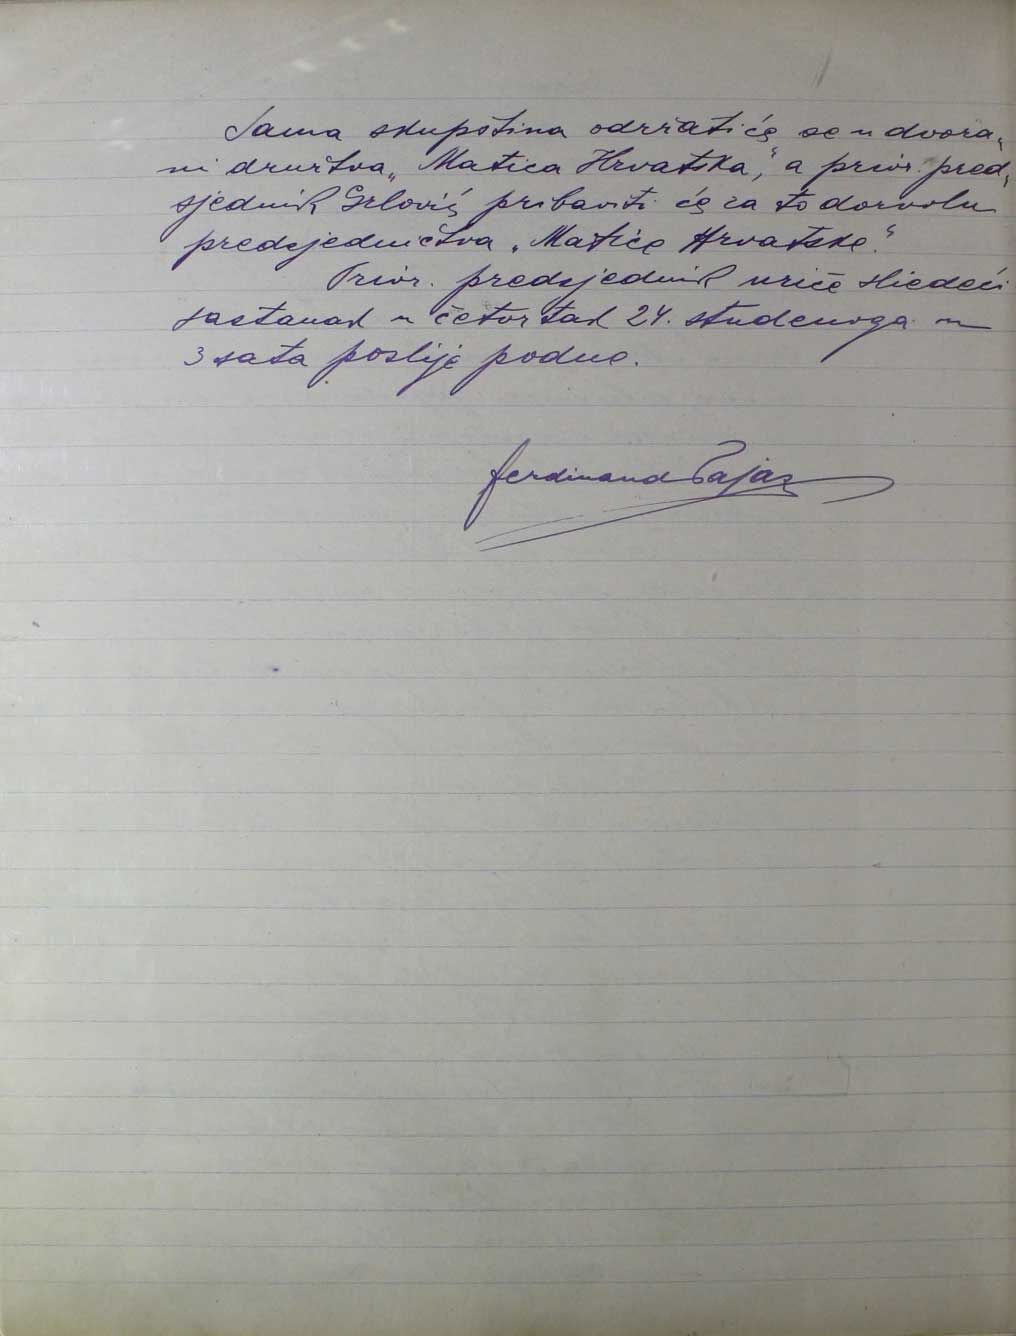 Sama skupština održati će se u dvora-
ni družtva „Matica Hrvatska“, a priv. pred-
sjednik Grlović pribaviti će za to dozvolu
predsjedničtva „Matice Hrvatske“.
Priv. predsjednik uriče sliedeći
sastanak u četvrtak 24. studenoga u
3 sata poslije podne.
Ferdinand Pajas